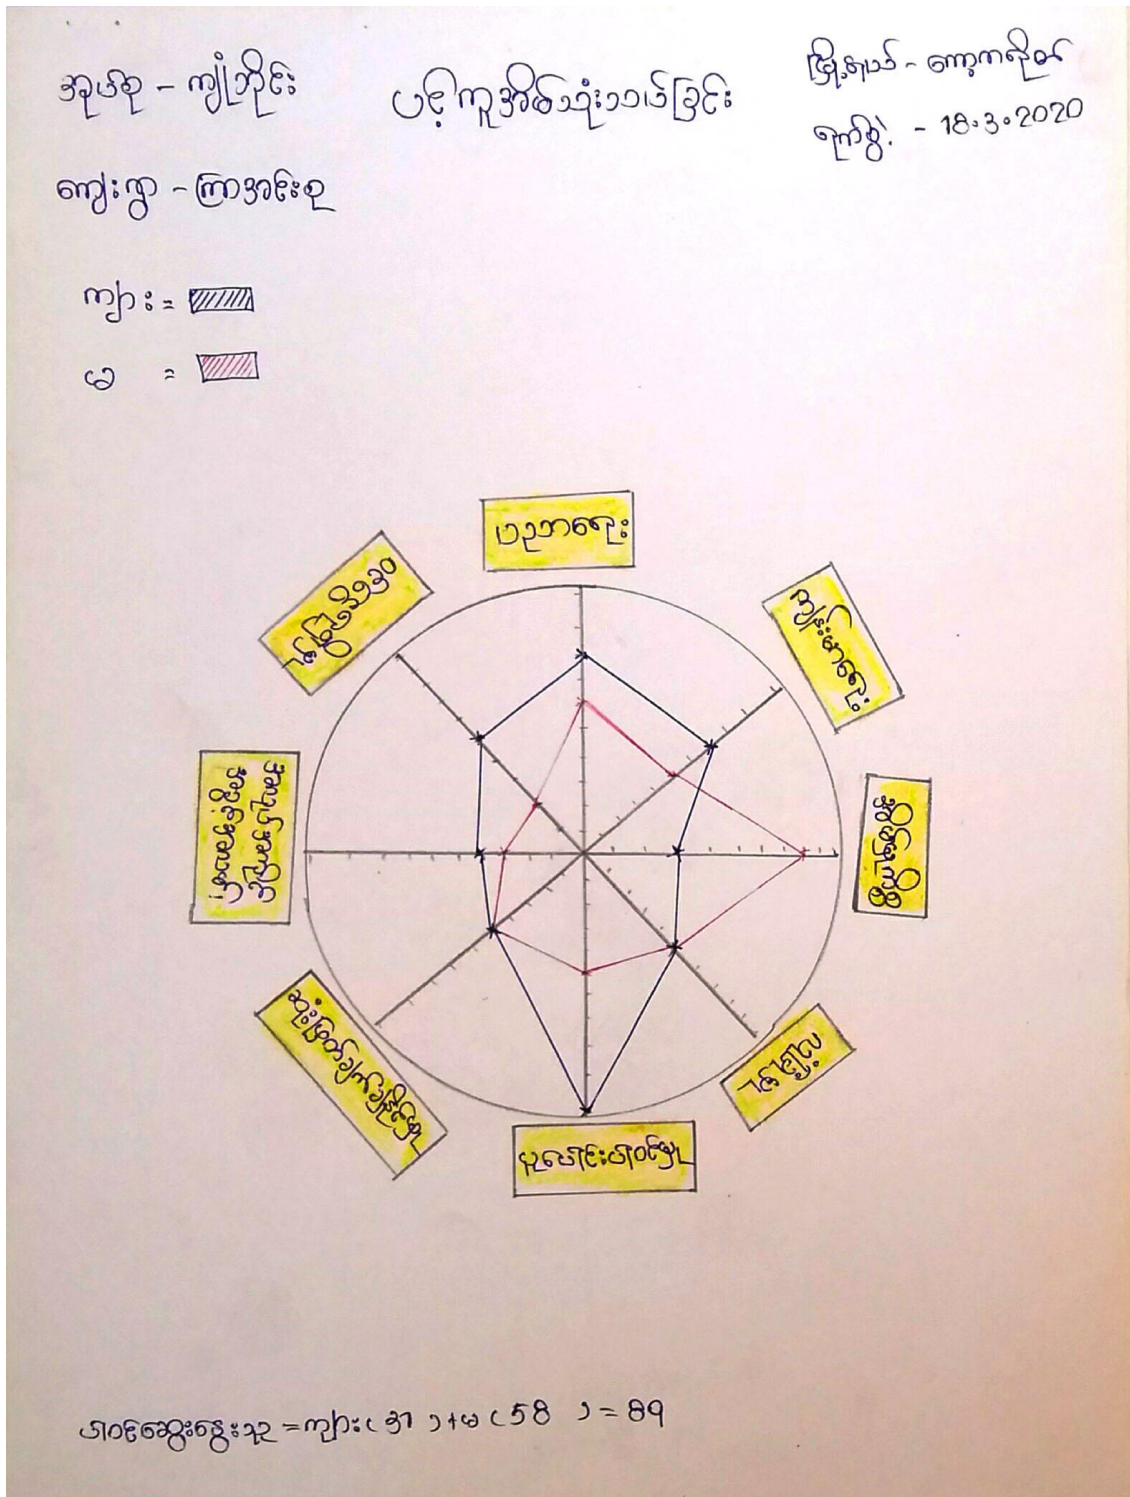 အုပ်စု - ကျုံဘိုင်း
ပင့်ကူအိမ်သုံးသပ်ခြင်း
မြို့နယ် - ကော့ကရိတ်
ရက်စွဲ. - 18.3.2020
ကျေးရွာ - ကြာအင်းစု
ကျား =
မ =
ပညာရေး
ကျန်းမာရေး
အိမ်မှုကိစ္စ
လှုံ့မှု
ပူးပေါင်းပါဝင်မှု
ဆုံးဖြတ်ချက်ချနိုင်မှု
အလုပ်အကိုင်
အခွင့်အလမ်း
ပါဝင်ဆွေးနွေးသူ = ကျား ( 31 ) + မ ( 58 ) = 89